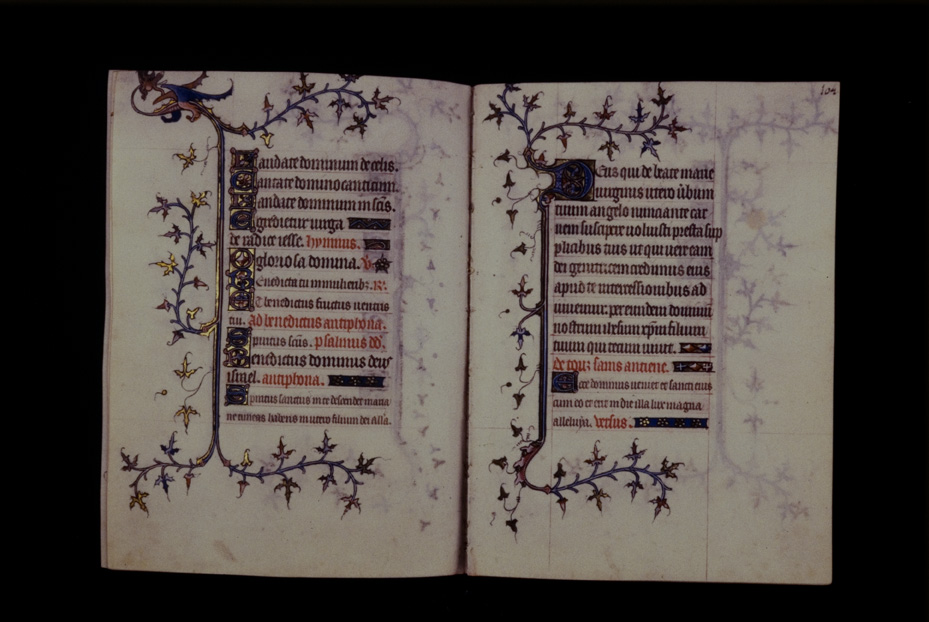 Laudate dominum de celis.
Cantate domino canticum.
Laudate dominum in scis.
Egredietur virga
de radice iesse. hymnus.
O gloriosa domina. V
Benedicta tu in mulieribz. R.
Et benedictus fructus ventris
tui. ad benedictus antiphona.
Spiritus scus. psalmus dd.
Benedictus dominus deus
israel. antiphona.
Spiritus sanctus in te descendet maria
ne timeas habens in utero filium dei alla.
104
Deus qui de beate marie
virginis utero verbum
tuum angelo nunciante car
nem suscipere voluisti presta sup
plicibus tuis ut qui vere eam
dei genitricem credimus eius
apud te intercessionibus ad
iuuemur. per eundem dominu
nostrum iesum xpm filium
tuum qui tecum viuit.
de touz sains antiene.
Ecce dominus veniet et sancti eius
cum eo et erit in die illa lux magna
alleluya. versus.